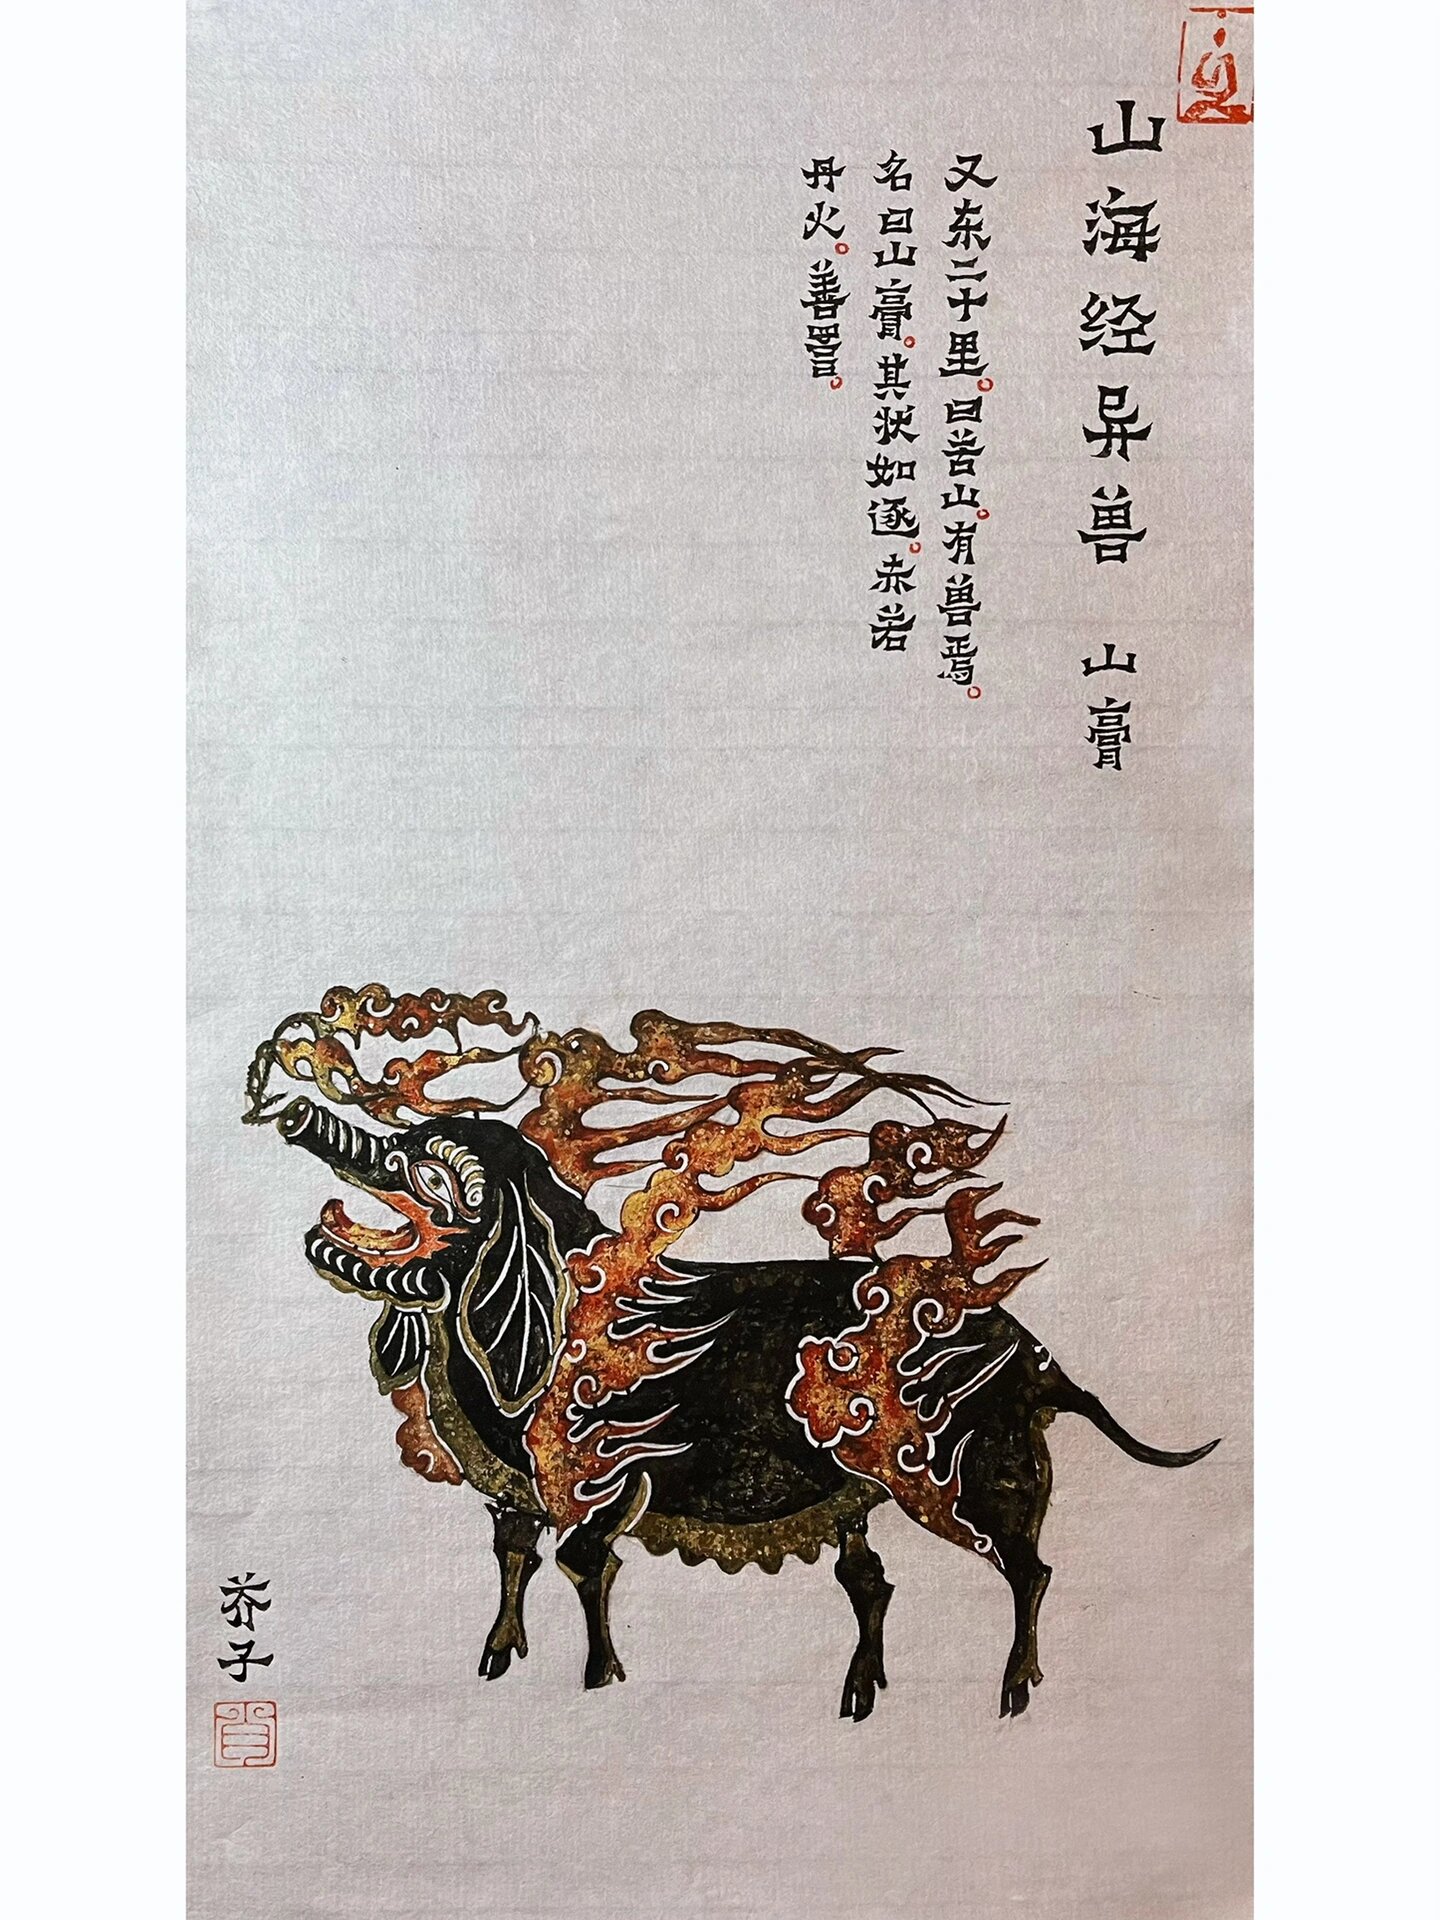 山海经异兽 山膏
又东二十里。曰苦山。有兽焉。
名曰山膏。其状如逐。赤若
丹火。善詈。
芥子